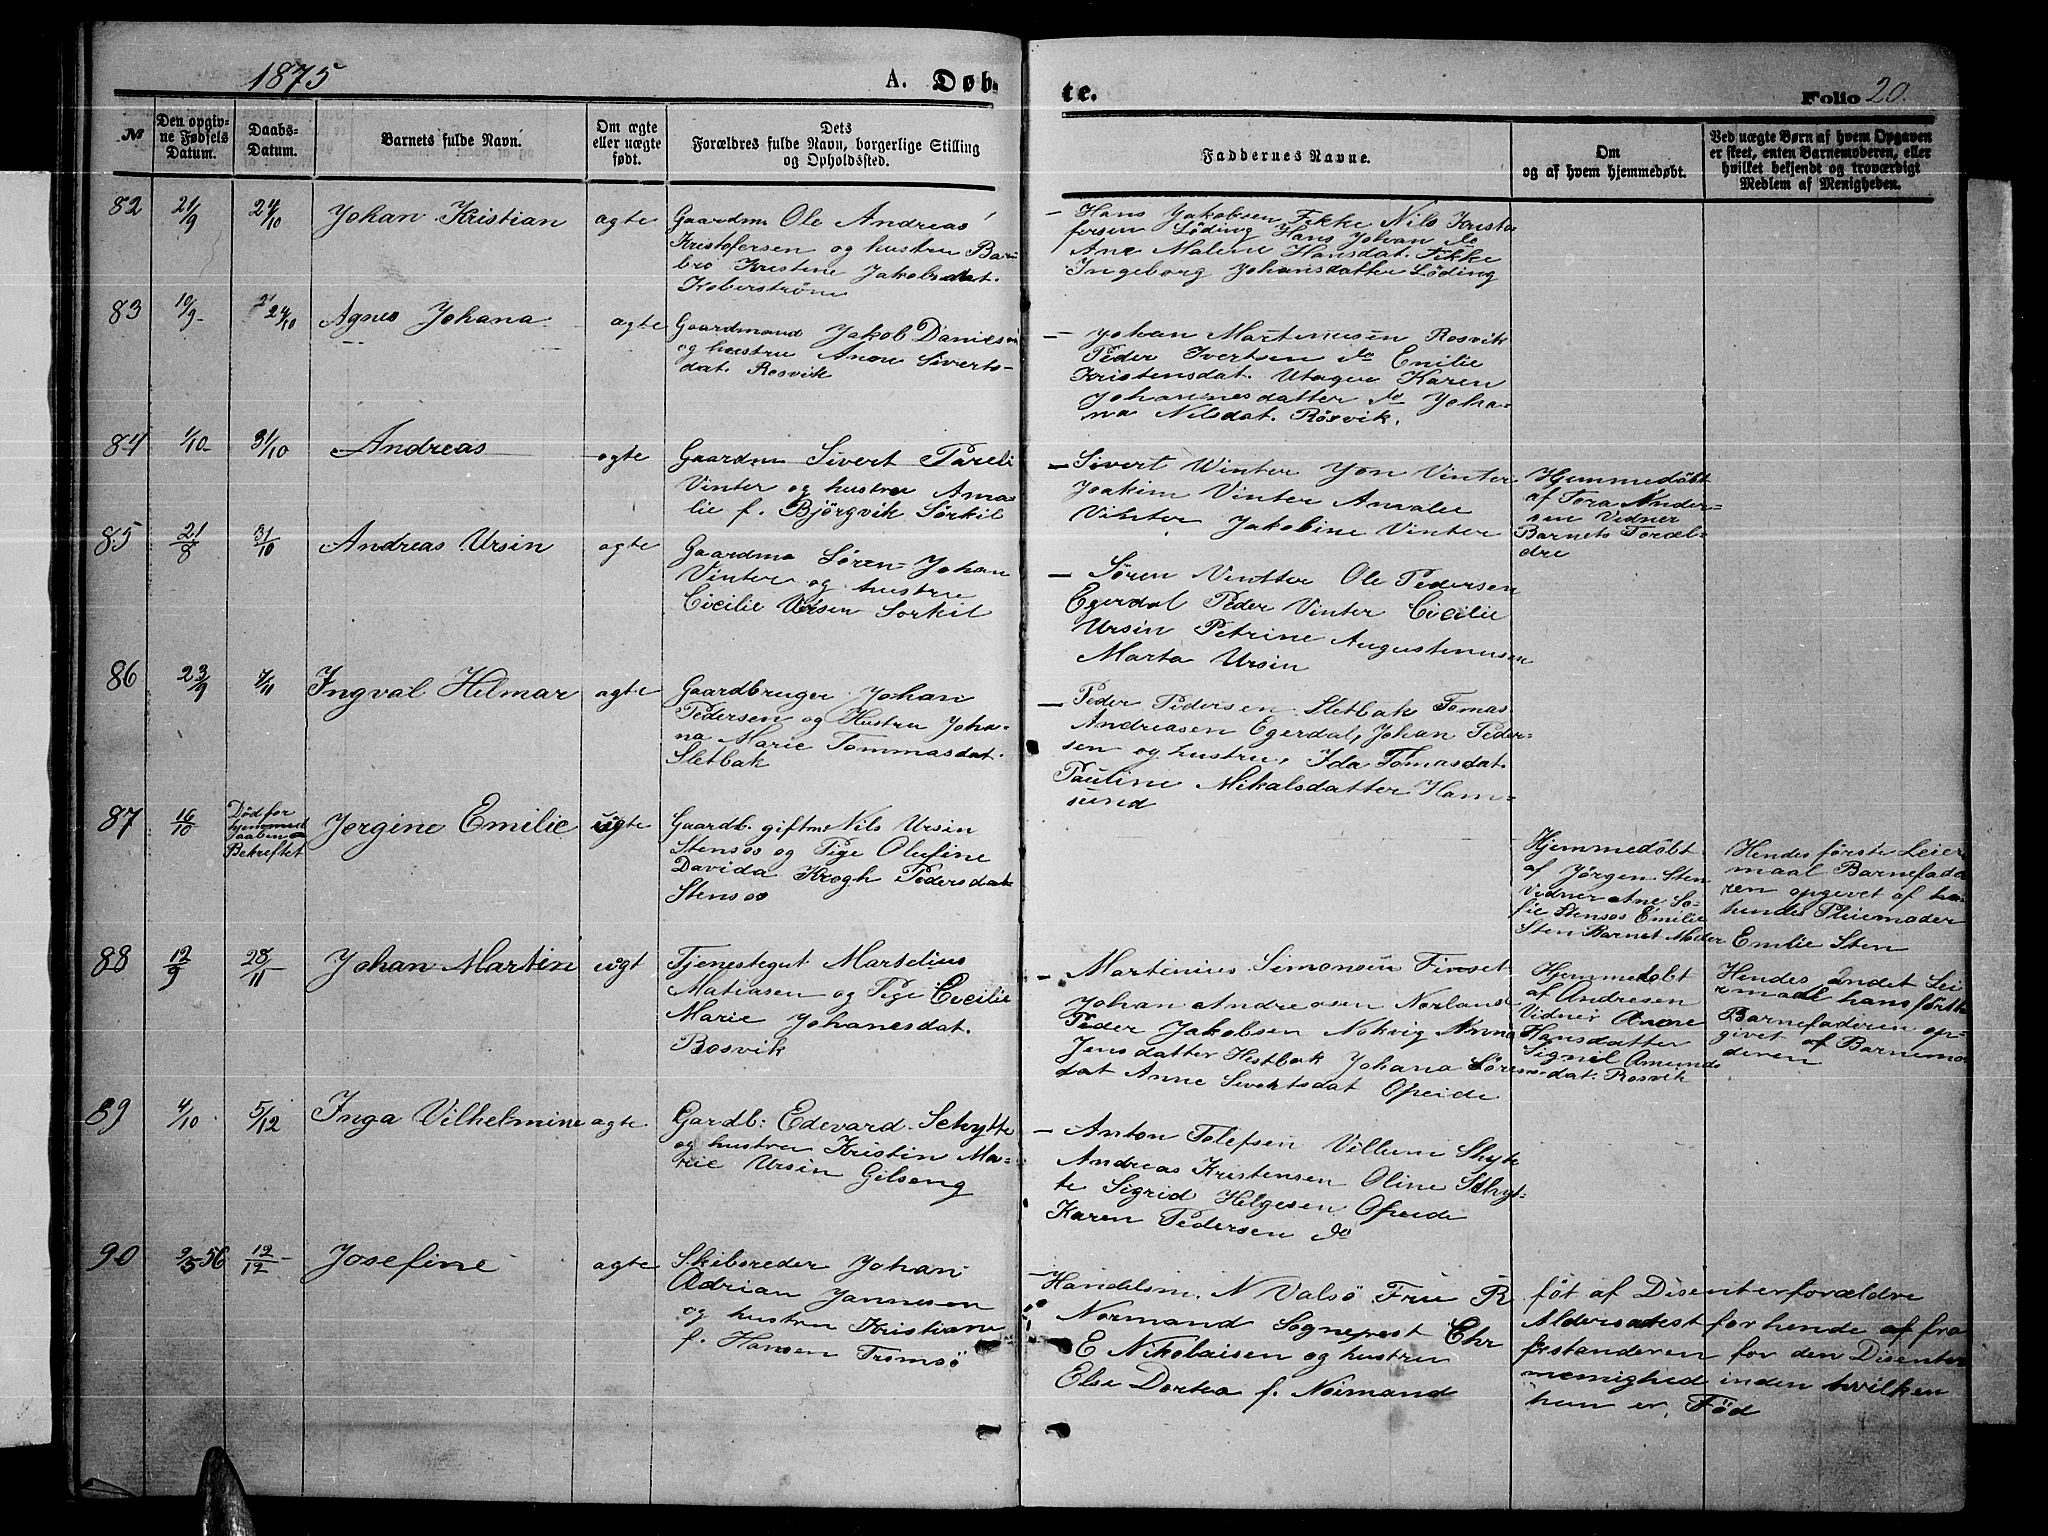 1875
A. Døb-
te.
Folio 20.
№
Den opgiv-
ne Fødsels
Datum.
Daabs-
Datum.
Barnets fulde Navn.
Om ægte
eller uægte
født.
Dets
Forældres fulde Navn, borgerlige Stilling
og Opholdssted.
Faddernes Navne.
Om
og af hvem hjemmedøbt.
Ved uægte Børn af hvem Opgaven
er skeet, enten Barnemoderen, eller
hvilket bekjendt og troværdigt
Medlem af Menigheden.
82
21/9
24/10
Johan Kristian
ægte
Gaardm Ole Andreas
Kristofersen og hustru Bar
bro Kristine Jakobsdat.
Koberstrøm
Hans Jakobsen Fikke Nils Kristo
fersen Löding Hans Johan do
Ane Malene Hansdat. Fikke
Ingeborg Johansdatter Löding
83
10/9
24/10
Agnes Johana
ægte
Gaardmand Jakob Daniels
og hustru Anne Siverts-
dat. Rosvik
Johan Martinusen Rosvik
Peder Ivertsen do Emilie
Kristensdat. Utager Karen
Johannesdatter do Joha-
na Nilsdat. Rösvik.
84
1/10
31/10
Andreas
ægte
Gaardm Sivert Pareli
Vinter og hustru Ama
lie f. Björgvik Sörkil
Sivert Winter Jon Vinter
Joakim Vinter Amalie
Vinter Jakobine Vinter
Hjemmedöbt
af Tora Ander-
sen Vidner
Barnets Foræl-
dre
85
21/8
31/10
Andreas Ursin
ægte
Gaardma Sören Johan
Vinter og hustru
Cicilie Ursin Sorkil
Sören Vintter Ole Pedersen
Egerdal Peder Vinter Cicilie
Ursin Petrine Augustinusen
Marta Ursin
86
23/9
7/11
Ingval Hilmar
ægte
Gaardbruger Johan
Pedersen og Hustru Joha-
na Marie Tommasdat.
Sletbak
Peder Pedersen Sletbak Tomas
Andreasen Egerdal, Johan Peder-
sen og hustru, Ida Tomasdat.
Pauline Mikalsdatter Ham-
sund
87
16/10
Död for
hjemmed
Daaben
Bekreftet
Jörgine Emilie
uægte
Gaardb. giftm Nils Ursin
Stensos og Pige Olufine
Davida Krogh Pedersdat
Stensos
Hjemmedöbt
af Jörgen Sten
Vidner Ane So-
fie Stensos Emilie
Sten Barnet Moder
Hendes förste Leier
maal Barnefade
ren opgivet af
hendes Pleiemoder
Emilie Sten
88
12/9
28/11
Johan Martin
uægt
Tjenestegut Martelius
Matiasen og Pige Cecilie
Marie Johanesdat.
Rosvik
Martinius Simonsen Finset
Johan Andreasen Norland
Peder Jakobsen Nokvig Anna
Jensdatter Hestbak Johana Sören
dat Anne Sivertsdat Opeide
Hjemmedöbt
af Andresen
Vidner Anne
Hansdatter
Signil Amunds
dat. Rosvik
Hendes 2ndet Lei
ermaal hans förste
Barnefaderen op-
givet af Barnemo
deren
89
4/10
5/12
Inga Vilhelmine
ægte
Gardb: Edevard Schytte
og hustru Kristin Ma-
rie Ursin Gilseng
Anton Tolefsen Villum Skyte
Andreas Kristensen Oline Schyt-
te Sigrid Helgesen Opeide
Karen Pedersen do
90
2/5 56
12/12
Josefine
ægte
Skibsreder Johan
Adrian Jannesen
og hustru Kristiane
f. Hansen Tromsö
Handelsm. N Valsö Fru R
Normand Sognepest Chr
E Nikolaisen og hustru
Else Dortea f. Normand
föt af Disenterforældre
Aldersattest for hende af fra
forstanderen for den Disenter
menighed inden hvilken
hun er Föd